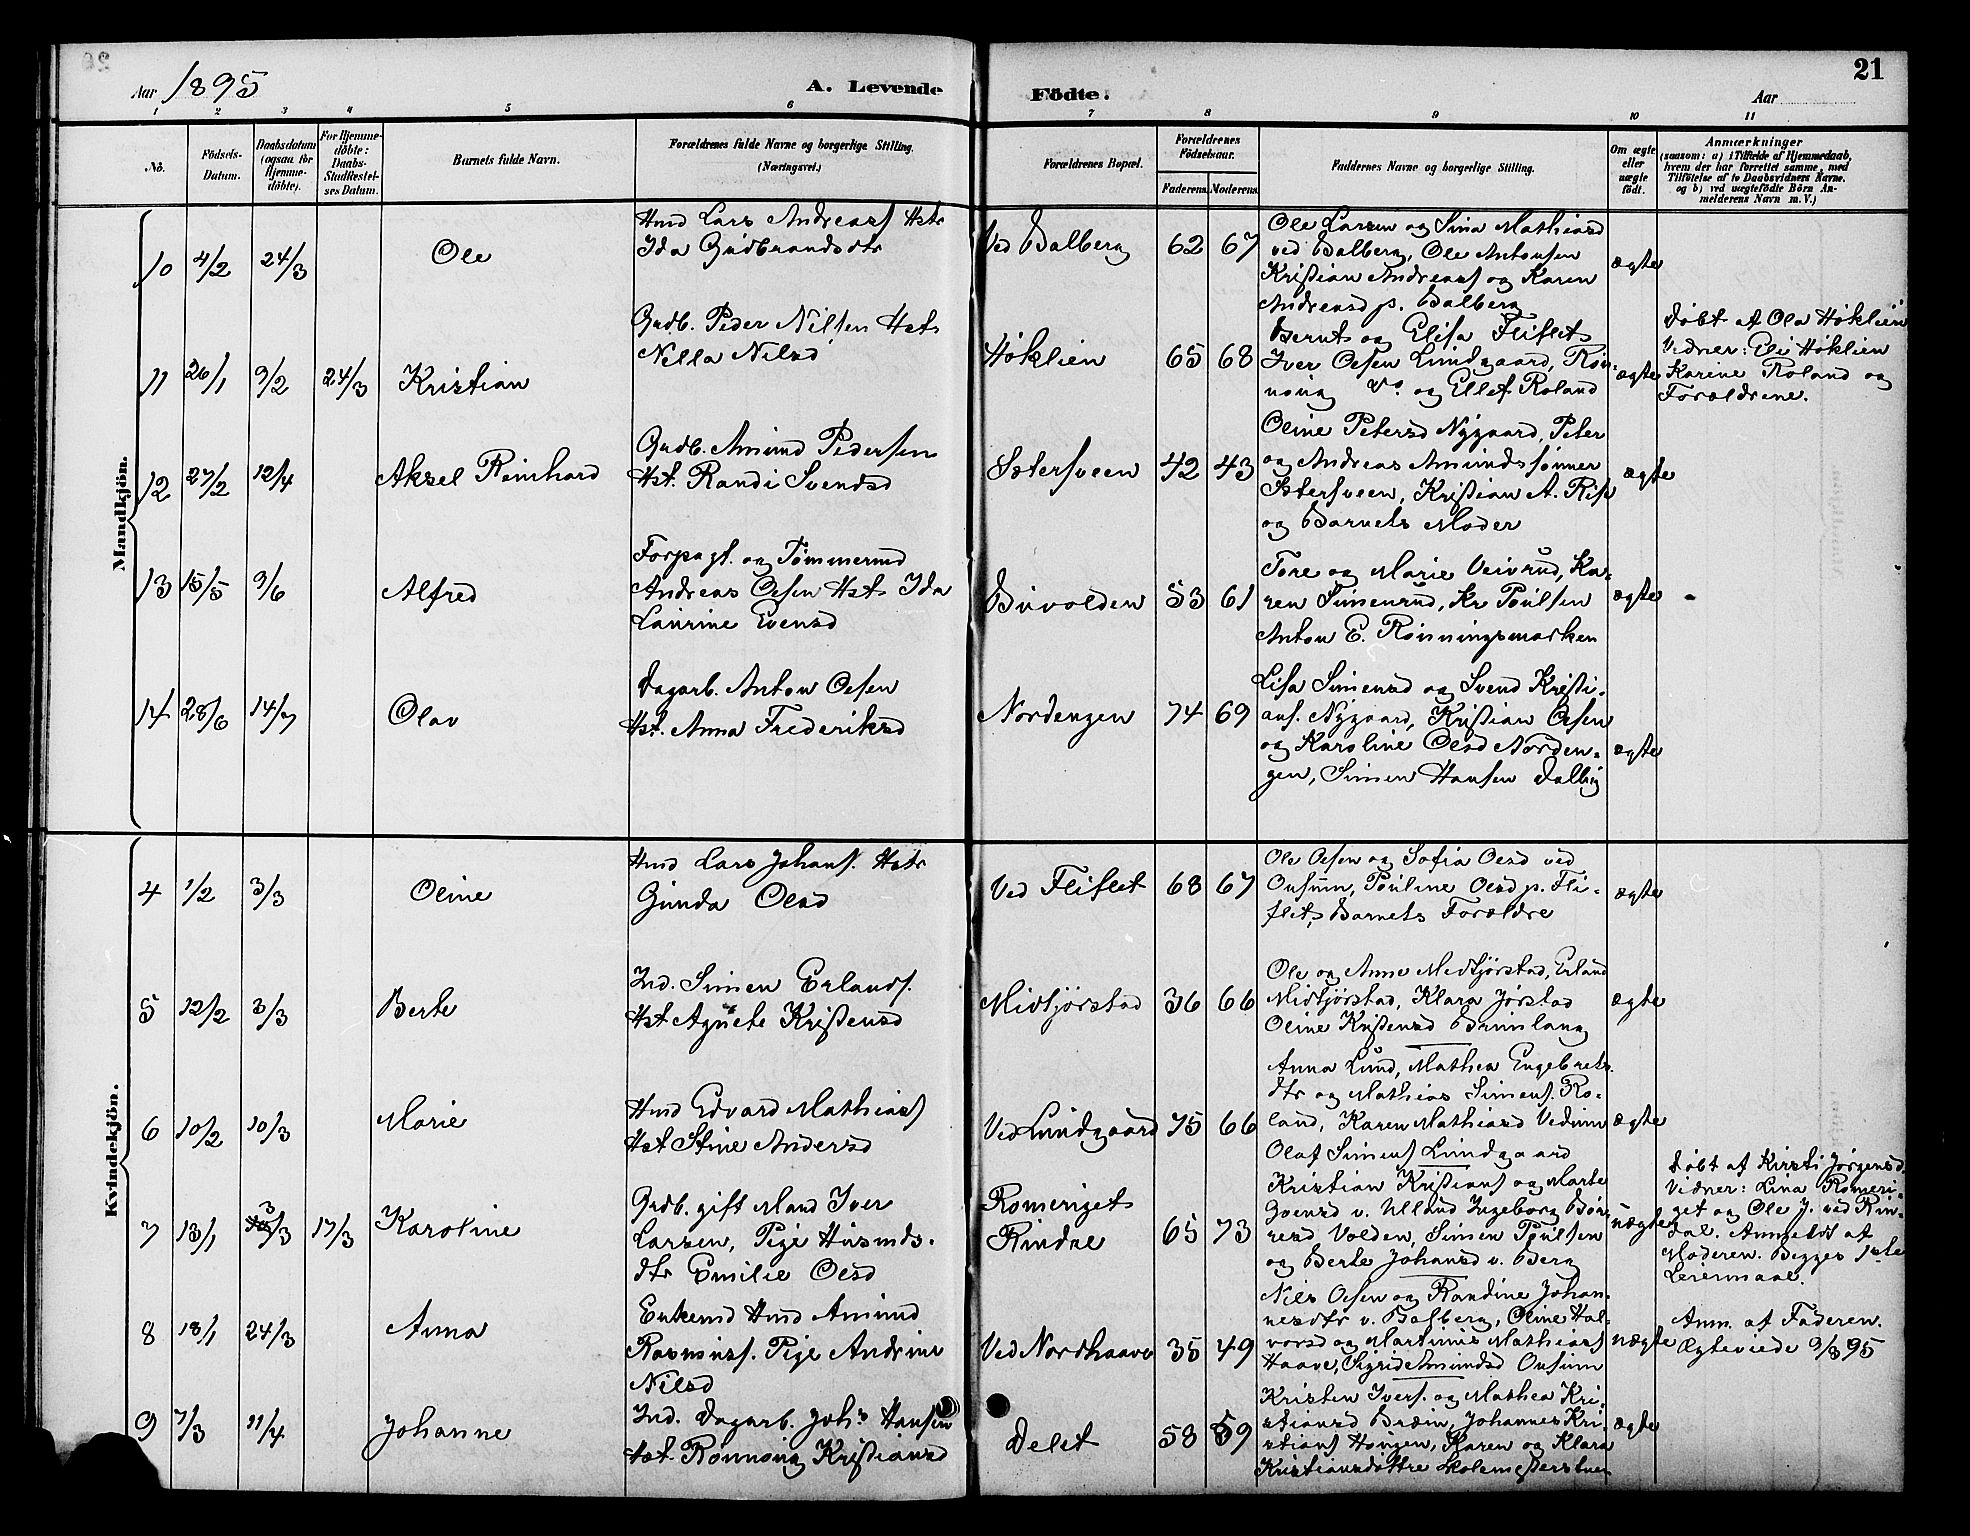 Aar 1895
A. Levende Födte.
21
Aar
1 2 3 4 5 6 7 8 9 10 11
No.
Födsels-Datum.
Daabsdatum (ogsaa for Hjemmedöbte).
For Hjemmedöbte: Daabs-Stadfestelses Datum.
Barnets fulde Navn.
Forældrenes fulde Navne og borgerlige Stilling. (Næringsvei.)
Forældrenes Bopæl.
Forældrenes Födselsaar.
Faderens. Moderens.
Faddernes Navne og borgerlige Stilling.
Om ægte eller uægte födt.
Anmærkninger
(saasom: a) i Tilfælde af Hjemmedaab, hvem der har forrettet samme, med Tilföielse af to Daabsvidners Navne. og b) ved uægtefödte Börn Anmelderens Navn m. V.)
Mandkjön.
10 4/2 24/3 Ole
Hmd Lars Andreass Hstr
Ida Gudbrandsdtr
Ved Balberg 62 67
Ole Larsen og Sina Mathiasd
ved Balberg, Ole Antonsen
Kristian Andreass og Karen
Andreasd p. Balberg
ægte
11 26/1 9/2 24/3 Kristian
Grdb. Peder Nilsen Hst.
Nella Nilsd
Høklien 65 68
Bernt og Elisa Fliflet
Iver Olsen Lundgaard, Røn-
noug do og Ellef Roland
ægte
Døbt af Ola Høklien
Vidner: Eli Høklien
Karine Roland og
Forældrene.
12 27/2 12/4 Aksel Reinhard
Grdb. Amund Pedersen
Hst. Randi Svendsd
Sætersveen 42 43
Oline Petersd Nygaard, Peter
og Andreas Amundssønner
Sætersveen, Kristian A. Rise
og Barnets Moder
ægte
13 15/5 9/6 Alfred
Forpagt. og Tømmermd
Andreas Olsen Hst. Ida
Laurine Evensd
Buvolden 53 61
Tore og Marie Veivrud, Ka-
ren Simenrud, Kr Poulsen
Anton E. Rønningsmarken
ægte
14 28/6 14/7 Olav
Dagarb. Anton Olsen
Hst. Anna Frederiksd
Nordengen 74 69
Lisa Simensd og Svend Kristi-
ans. Nygaard, Kristian Olsen
og Karoline Olsd Norden-
gen, Simen Hansen Dalbig
ægte
Kvindekjön.
4 1/2 3/3 Oline
Hmd Lars Johans. Hstr
Gunda Olsd
Ved Fliflet 68 67
Ole Olsen og Sofia Olsd ved
Ousum, Pouline Olsd p. Fli-
flet, Barnets Forældre
ægte
5 12/2 3/3 Berte
Ind. Simen Erlands.
Hst Agnete Kristensd
Midtjørstad 36 66
Ole og Anne Midtjørstad, Erland
Midtjørstad, Klara Jørstad
Oline Kristensd Brunlaug
ægte
6 10/2 10/3 Marie
Hmd Edvard Mathiass
Hst Stine Andersd
Ved Lundgaard 75 66
Anna Lund, Mathea Engebrets
dtr og Mathias Simens. Ro-
land, Karen Mathiasd Vedum
Olaf Simens Lundgaard
ægte
7 13/1 3/3 17/3 Karoline
Grdb. gift Mand Iver
Larsen, Pige Husmds.
dtr Emilie Olsd
Romeriget
Rindal 65 73
Kristian Kristians og Marte
Evensd v. Ulland Ingeborg Bør-
resd Volden, Simen Poulsen
og Berte Johansd v. Berg
uægte
Døbt af Kirsti Jørgensd.
Vidner: Lina Romeri-
get og Ole J. ved Rin-
dal. Anmeldt af
Moderen. Begges 1ste
Leiermaal.
8 18/1 24/3 Anna
Enkemd Hmd Amund
Rasmuss. Pige Andrine
Nilsd
Ved Nordhaave 35 49
Nils Olsen og Randine Johan-
nesdtr v. Balberg, Oline Hal-
vorsd og Martinus Mathiass
Haave, Sigrid Amundsd Ousum
uægte
Anm. af Faderen.
Ægteviede 9/3 95
9 7/3 11/4 Johanne
Ind. Dagarb. Johs Hansen
Hst. Rønnoug Kristiansd
Delet 58 59
Kristen Ivers. og Mathea Kri-
stiansd Bræin, Johannes Kri-
stians Hougen, Karen og Klara
Kristiansdøttre Skolemesterstuen
ægte